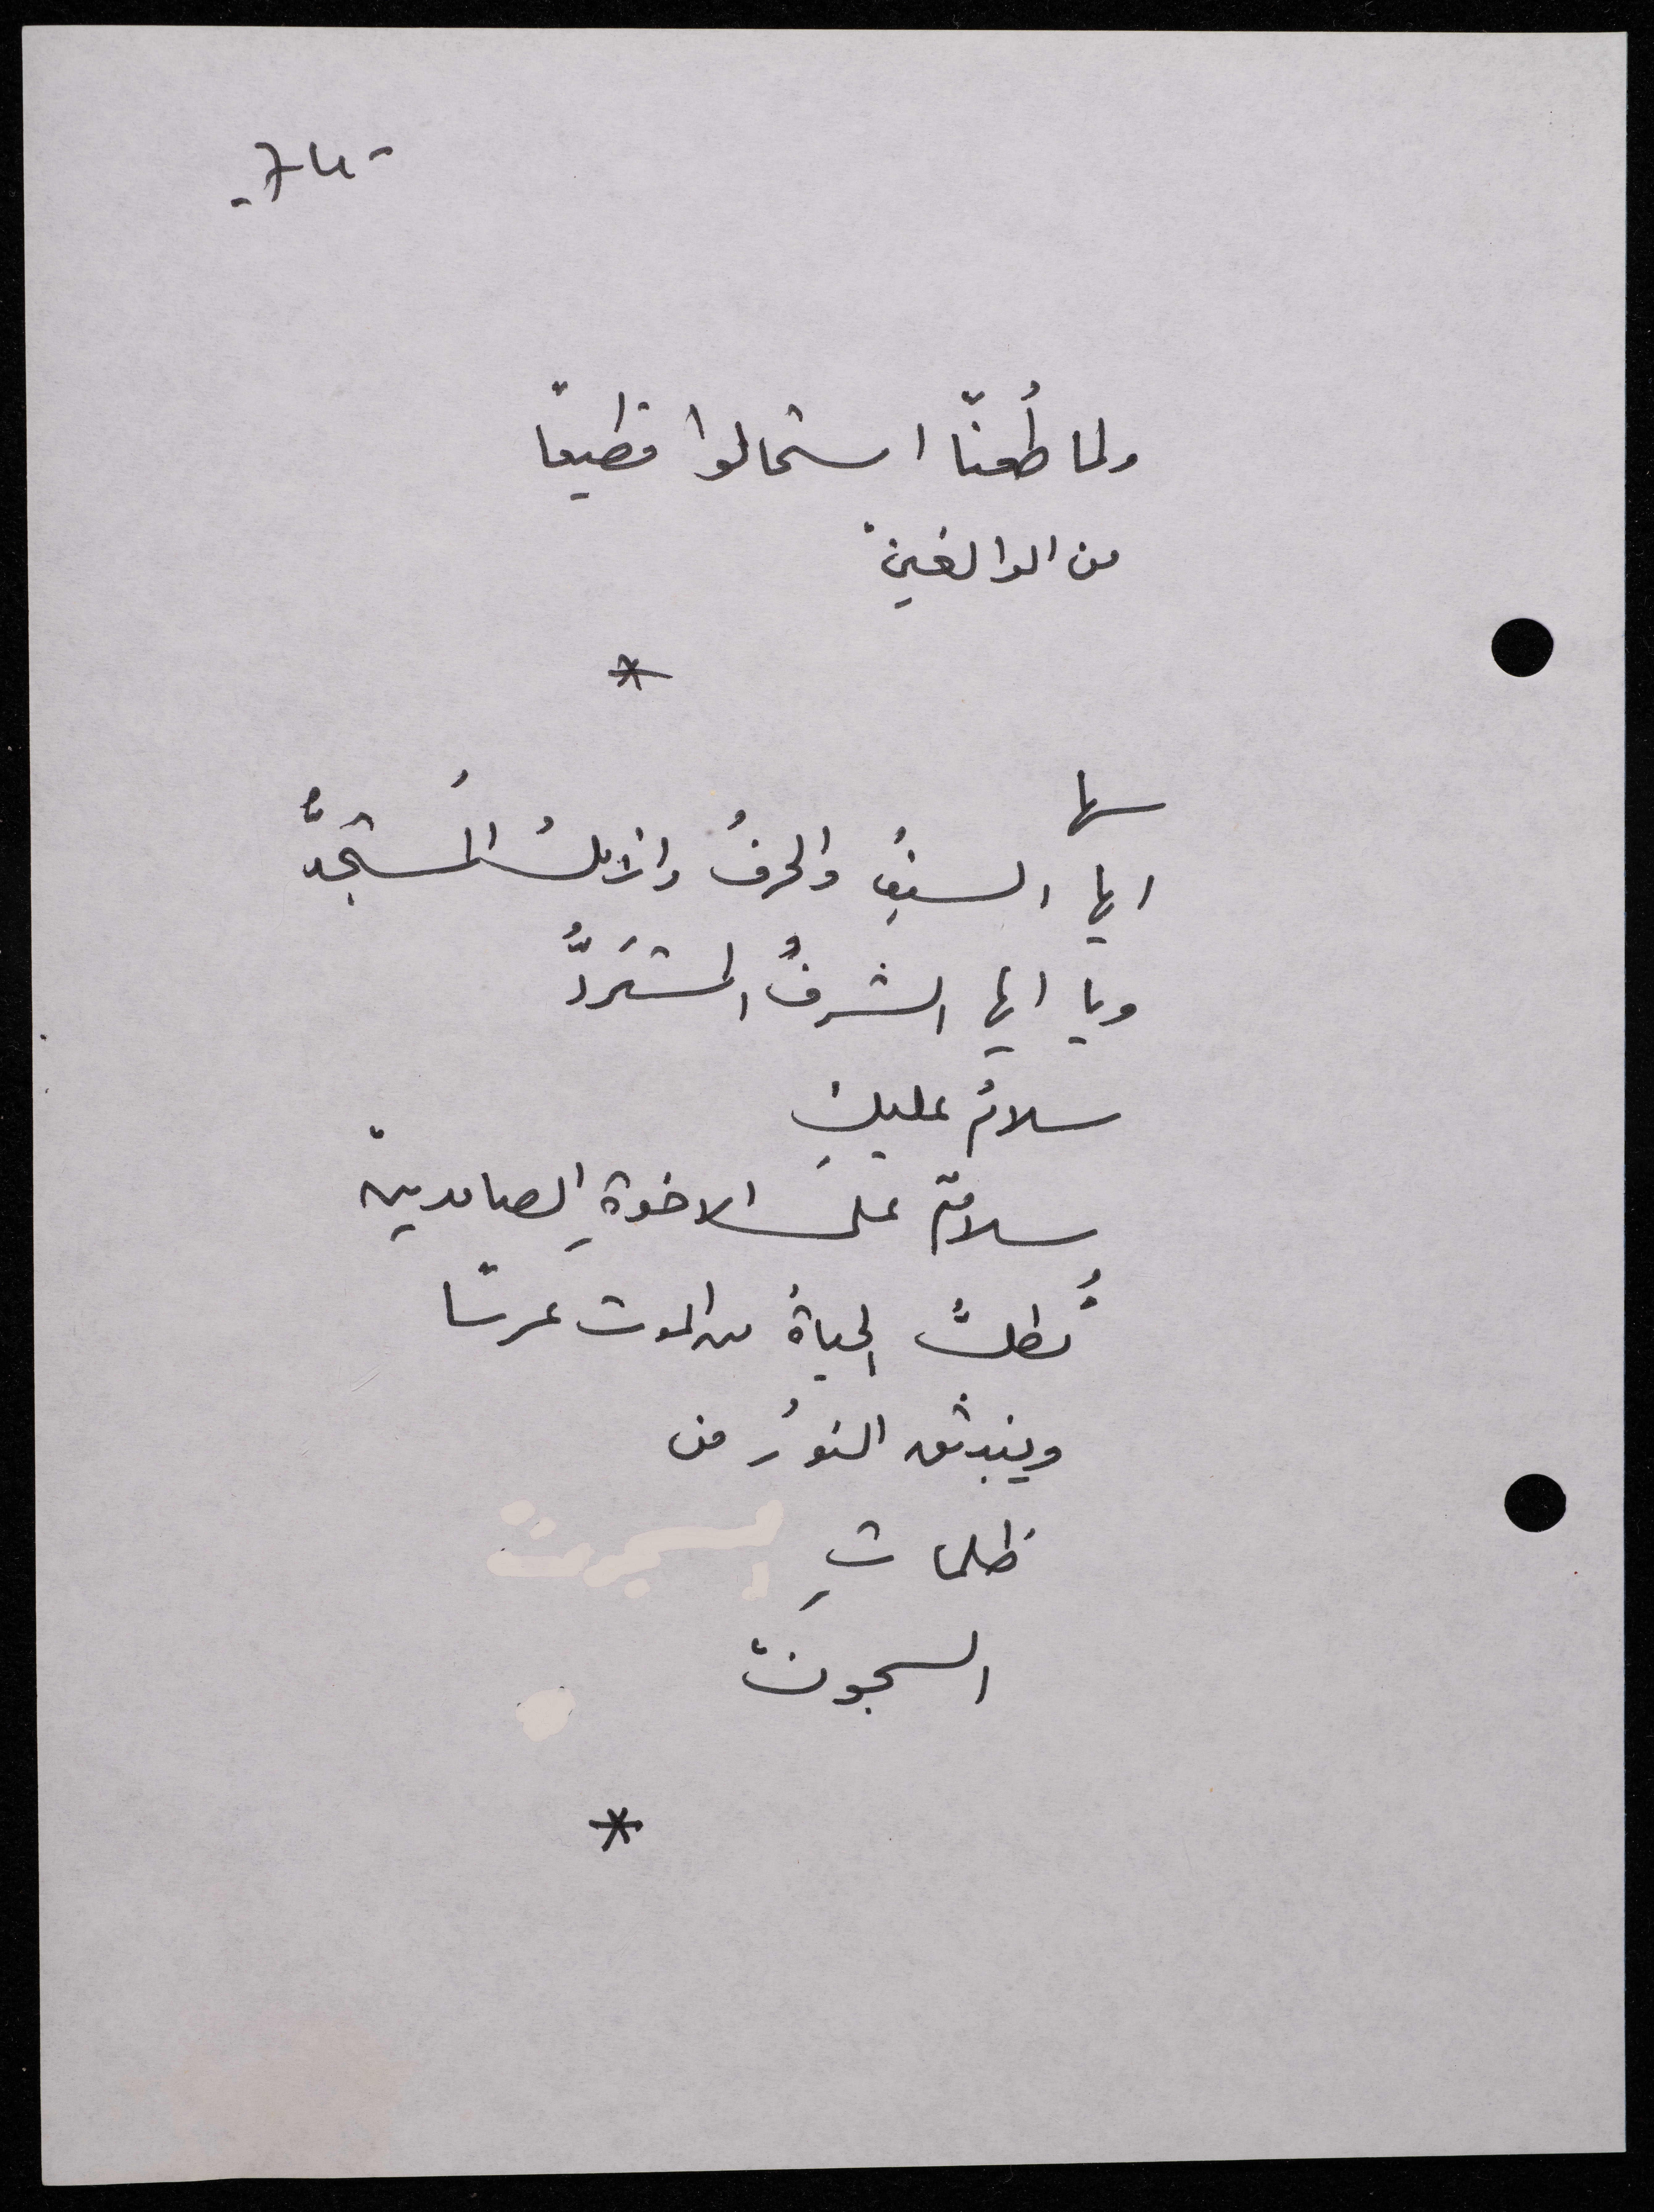 ولما طُعنّا استحالوا قطيعًا
من الوالغينْ
*
سها
ايها السيفُ والحرفُ والأملُ المُستجدُّ
ويا ايها الشرفُ المستَردُّ
سلامٌ عليكِ
سلامٌ على الاخوةِ الصامدينْ
تُطلُّ الحياةُ من الموت عرسًا
وينبثق النورُ من
ظلماتِ
السجونْ
*